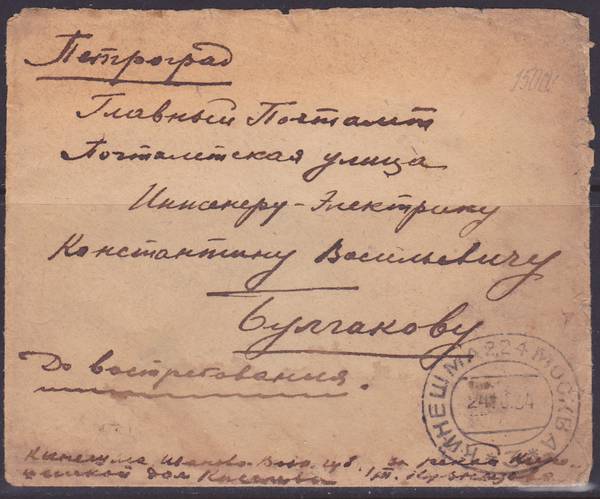 Петроград
Главный Почтамт
Почтамтская улица
Инженеру-Электрику
Константину Васильевичу
Булгакову
До востребования.
КИНЕШМА 224 МОСКВА
Кинешма Иваново-Возн. губ. за рекой
дом